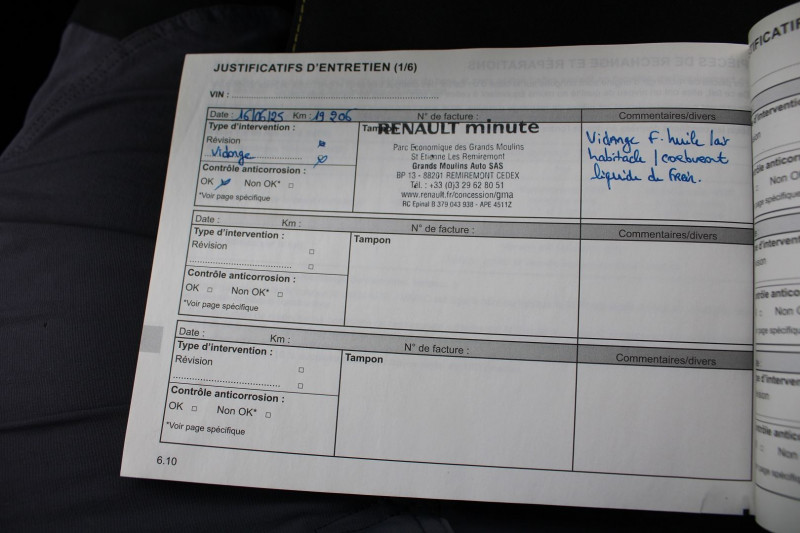 JUSTIFICATIFS D'ENTRETIEN (1/6)
VIN :
Date : 16/06/25 Km : 19 206 N° de facture : Commentaires/divers
Type d'intervention :
Révision
Vidange
Contrôle anticorrosion :
OK Non OK*
*Voir page spécifique
Tampon
RENAULT minute
Parc Economique des Grands Moulins
St Etienne Les Remiremont
Grands Moulins Auto SAS
BP 13 - 88201 REMIREMONT CEDEX
Tél. : +33 (0)3 29 62 80 51
www.renault.fr/concession/gma
RC Epinal B 379 043 938 - APE 4511Z
Vidange F. huile/air
habitacle / carburant
liquide de Frein.
Date : Km : N° de facture : Commentaires/divers
Type d'intervention :
Révision
Contrôle anticorrosion :
OK Non OK*
*Voir page spécifique
Tampon
Date : Km : N° de facture : Commentaires/divers
Type d'intervention :
Révision
Contrôle anticorrosion :
OK Non OK*
*Voir page spécifique
Tampon
6.10